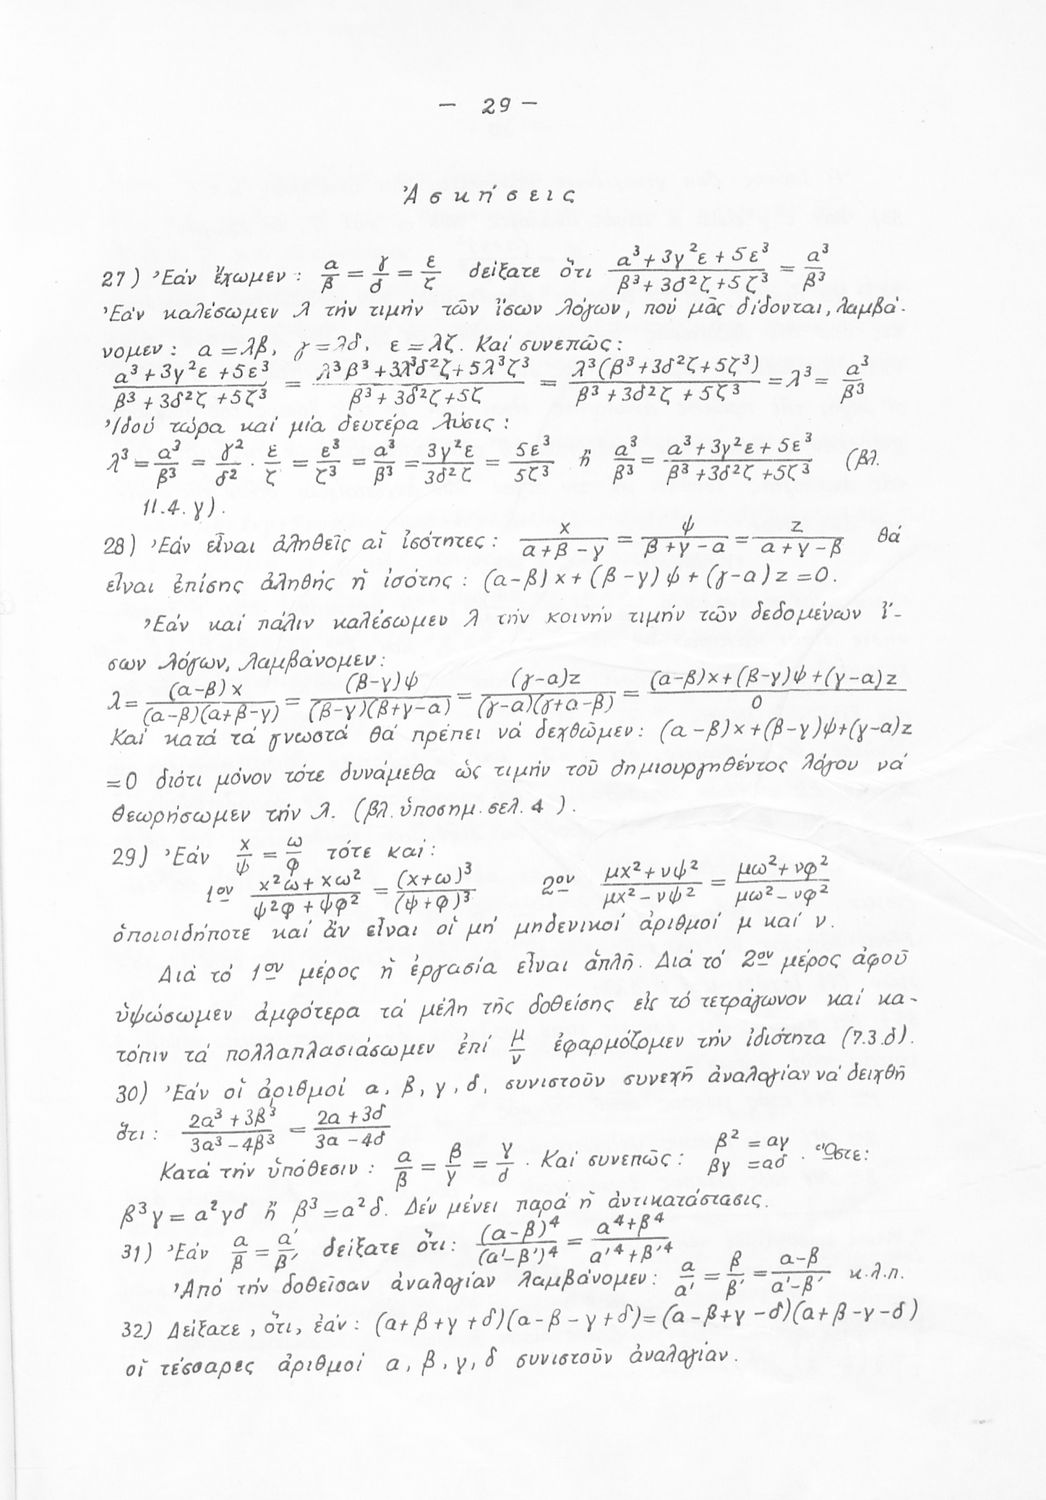 — 29 —
Ἀσκήσεις
27) Ἐάν ἔχωμεν : α/β = γ/δ = ε/ζ δείξατε ὅτι (α³+3γ²ε+5ε³)/(β³+3δ²ζ+5ζ³) = α³/β³
Ἐάν καλέσωμεν λ τήν τιμήν τῶν ἴσων λόγων, πού μᾶς δίδονται, λαμβά-
νομεν : α=λβ, γ=λδ, ε=λζ. Καί συνεπῶς :
(α³+3γ²ε+5ε³)/(β³+3δ²ζ+5ζ³) = (λ³β³+3λ³δ²ζ+5λ³ζ³)/(β³+3δ²ζ+5ζ) = λ³(β³+3δ²ζ+5ζ³)/(β³+3δ²ζ+5ζ³) = λ³ = α³/β³
Ἰδού τώρα καί μία δευτέρα λύσις :
λ³ = α³/β³ = γ²/δ² · ε/ζ = ε³/ζ³ = α³/β³ = 3γ²ε/3δ²ζ = 5ε³/5ζ³ ἤ α³/β³ = (α³+3γ²ε+5ε³)/(β³+3δ²ζ+5ζ³) (βλ.
11.4.γ).
28) Ἐάν εἶναι ἀληθεῖς αἱ ἰσότητες : x/(α+β-γ) = ψ/(β+γ-α) = z/(α+γ-β) θά
εἶναι ἐπίσης ἀληθής ἡ ἰσότης : (α-β)x+(β-γ)ψ+(γ-α)z=0.
Ἐάν καί πάλιν καλέσωμεν λ τήν κοινήν τιμήν τῶν δεδομένων ἴ-
σων λόγων, λαμβάνομεν :
λ = (α-β)x/(α-β)(α+β-γ) = (β-γ)ψ/(β-γ)(β+γ-α) = (γ-α)z/(γ-α)(γ+α-β) = ((α-β)x+(β-γ)ψ+(γ-α)z)/0
Καί κατά τά γνωστά θά πρέπει νά δεχθῶμεν : (α-β)x+(β-γ)ψ+(γ-α)z
=0 διότι μόνον τότε δυνάμεθα ὡς τιμήν τοῦ δημιουργηθέντος λόγου νά
θεωρήσωμεν τήν λ. (βλ. ὑποσημ. σελ. 4 ).
29) Ἐάν x/ψ = ω/φ τότε καί :
1ον (x²ω+xω²)/(ψ²φ+ψφ²) = (x+ω)³/(ψ+φ)³ 2ον (μx²+νψ²)/(μx²-νψ²) = (μω²+νφ²)/(μω²-νφ²)
ὁποιοιδήποτε καί ἄν εἶναι οἱ μή μηδενικοί ἀριθμοί μ καί ν.
Διά τό 1ον μέρος ἡ ἐργασία εἶναι ἁπλῆ. Διά τό 2ον μέρος ἀφοῦ
ὑψώσωμεν ἀμφότερα τά μέλη τῆς δοθείσης εἰς τό τετράγωνον καί κα-
τόπιν τά πολλαπλασιάσωμεν ἐπί μ/ν ἐφαρμόζομεν τήν ἰδιότητα (7.3.δ).
30) Ἐάν οἱ ἀριθμοί α, β, γ, δ, συνιστοῦν συνεχῆ ἀναλογίαν νά δειχθῆ
ὅτι : (2α³+3β³)/(3α³-4β³) = (2α+3δ)/(3α-4δ)
Κατά τήν ὑπόθεσιν : α/β = β/γ = γ/δ . Καί συνεπῶς : β²=αγ βγ=αδ . Ὥστε :
β³γ = α²γδ ἤ β³=α²δ. Δέν μένει παρά ἡ ἀντικατάστασις.
31) Ἐάν α/β = α'/β' δείξατε ὅτι : (α-β)⁴/(α'-β')⁴ = (α⁴+β⁴)/(α'⁴+β'⁴
Ἀπό τήν δοθεῖσαν ἀναλογίαν λαμβάνομεν : α/α' = β/β' = (α-β)/(α'-β') κ.λ.π.
32) Δείξατε, ὅτι, ἐάν : (α+β+γ+δ)(α-β-γ+δ)=(α-β+γ-δ)(α+β-γ-δ)
οἱ τέσσαρες ἀριθμοί α, β, γ, δ συνιστοῦν ἀναλογίαν.